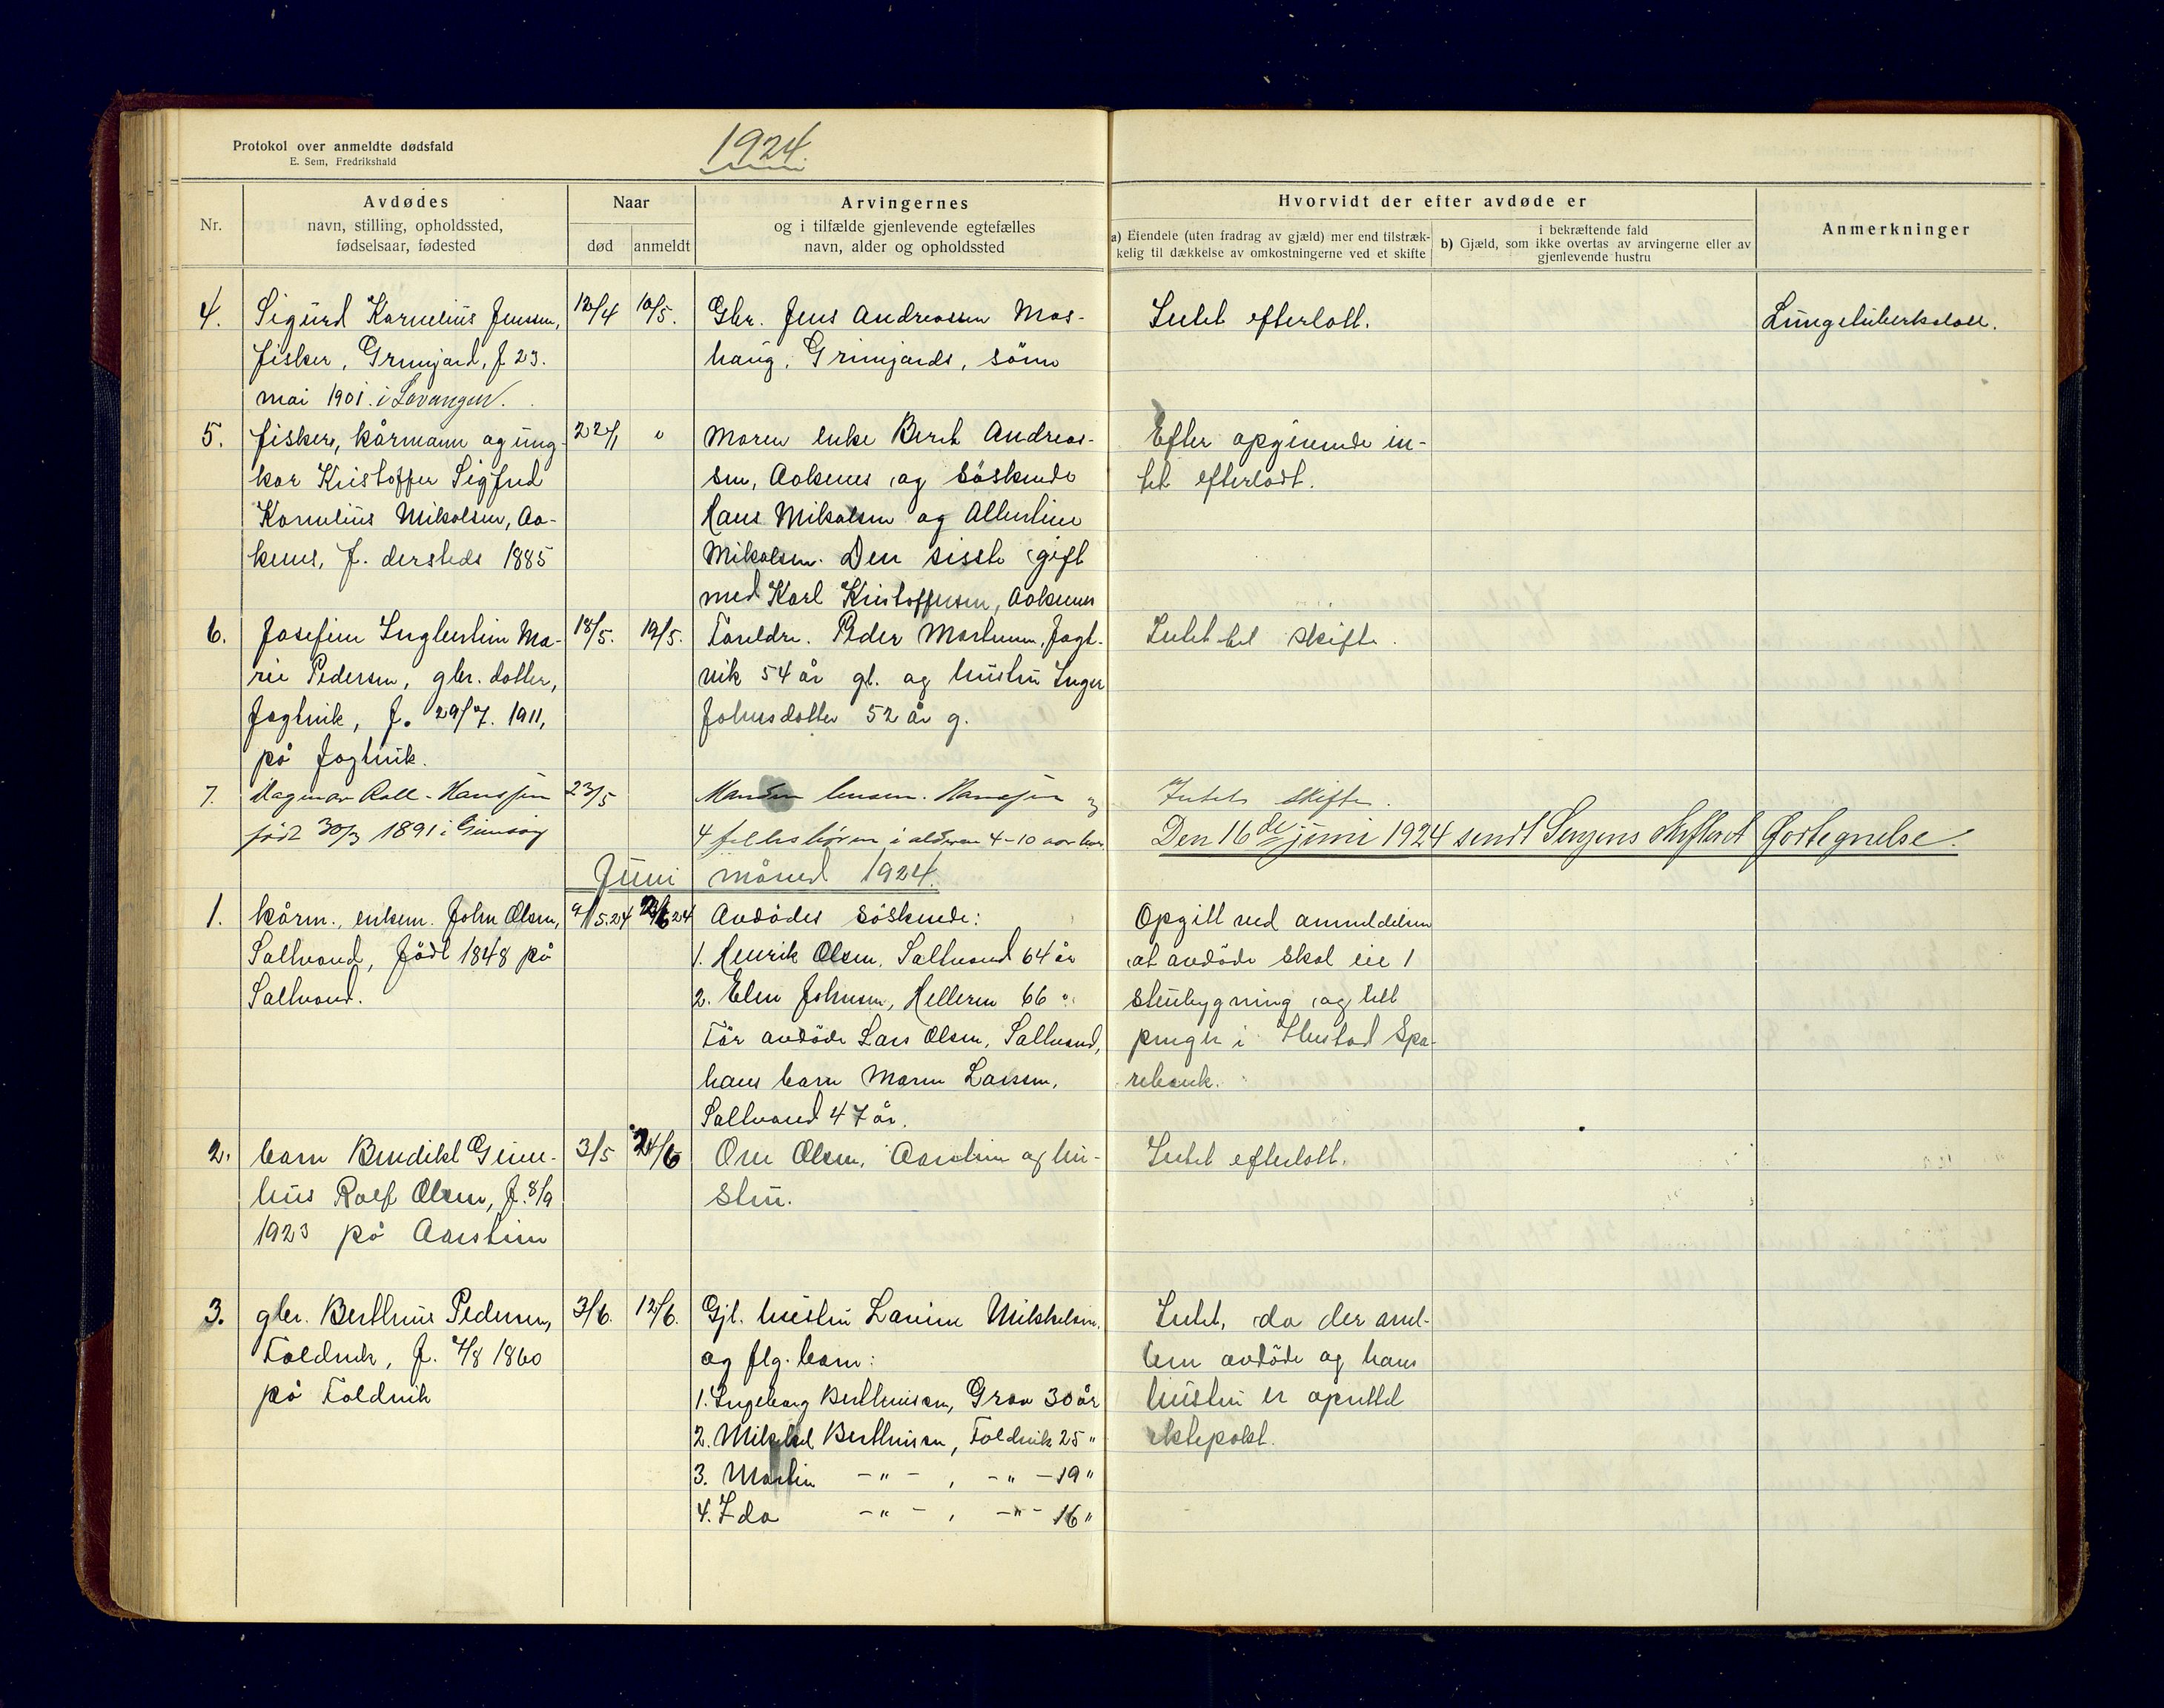 Protokol over anmeldte dødsfald
E. Sem, Fredrikshald
1924
Nr.
Avdødes
navn, stilling, opholdssted,
fødselsaar, fødested
Naar
død
anmeldt
Arvingernes
og i tilfælde gjenlevende egtefælles
navn, alder og opholdssted
Hvorvidt der efter avdøde er
a) Eiendele (uten fradrag av gjæld) mer end tilstræk-
kelig til dækkelse av omkostningerne ved et skifte
i bekræftende fald
b) Gjæld, som ikke overtas av arvingerne eller av
gjenlevende hustru
Anmerkninger
4.
Sigurd Kornelius Jensen,
fisker, Grunjord, f 23.
mai 1901. i Lavangen.
12/4
10/5.
Gbr. Jens Andreassen Mos-
haug, Grunjords, sønn
Intet efterlatt.
Lungetuberkulose.
5.
fisker, kårmann og ung-
kar Kristoffer Sigfred
Kornelius Mikalsen, Aa-
kenes, f. dersteds 1885
22/1
"
Moren enke Berit Andreas-
sen, Aakenes og söskende
Hans Mikalsen og Albertine
Mikalsen. Den sisste gift
med Karl Kristoffersen, Aakenes
Efter opgivende in-
tet efterladt.
6.
Josefine Ingbertine Ma-
rie Pedersen, gbr. datter,
Fogtvik, f. 29/7. 1911,
på Fogtvik.
18/5.
19/5.
Foreldre. Peder Mortensen, Fogt-
vik 54 år gl. og hustru Inger
Johnsdatter 52 år g.
Intet til skifte.
7.
Dagmar Roll-Hanssen
født 30/3 1891 i Gimsøy
23/5
Manden lensm. Hanssen og
4 fellesbørn i alderen 4-10 aar
Intet skifte.
Den 16de juni 1924 sendt Senjens skifteret Fortegnelse.
Juni måned 1924.
1.
kårm., enkem. John Olsen,
Saltvand, född 1848 på
Saltvand.
9/5.24
2/6 24
Avdødes söskende:
1. Henrik Olsen, Saltvand 64 år
2. Elen Johnsen, Helleren 66 "
Før avdöde Lars Olsen, Saltvand,
hans barn Maren Larssen,
Saltvand 47 år.
Opgitt ved anmeldelsen
at avdöde skal eie 1
stubygning og litt
penger i Ibestad Spa-
rebank.
2.
barn Bendikt Gun-
hus Rolf Olsen, f. 8/9
1923 på Aarstein
3/5
24/6
Ove Olsen, Aarstein og hu-
stru.
Intet efterlatt.
3.
gbr. Bertheus Pedersen,
Foldvik, f. 4/8 1860
på Foldvik
3/6.
12/6.
Gjl. hustru Lavine Mikkelsen,
og flg. barn:
1. Ingeborg Bertheussen, Grov 30 år
2. Mikkel Bertheussen, Foldvik 25 "
3. Martin - " - , - " - 19 "
4. Ida - " - , - " - 16 "
Intet, da der mel-
lem avdöde og hans
hustru er oprettet
ektepakt.